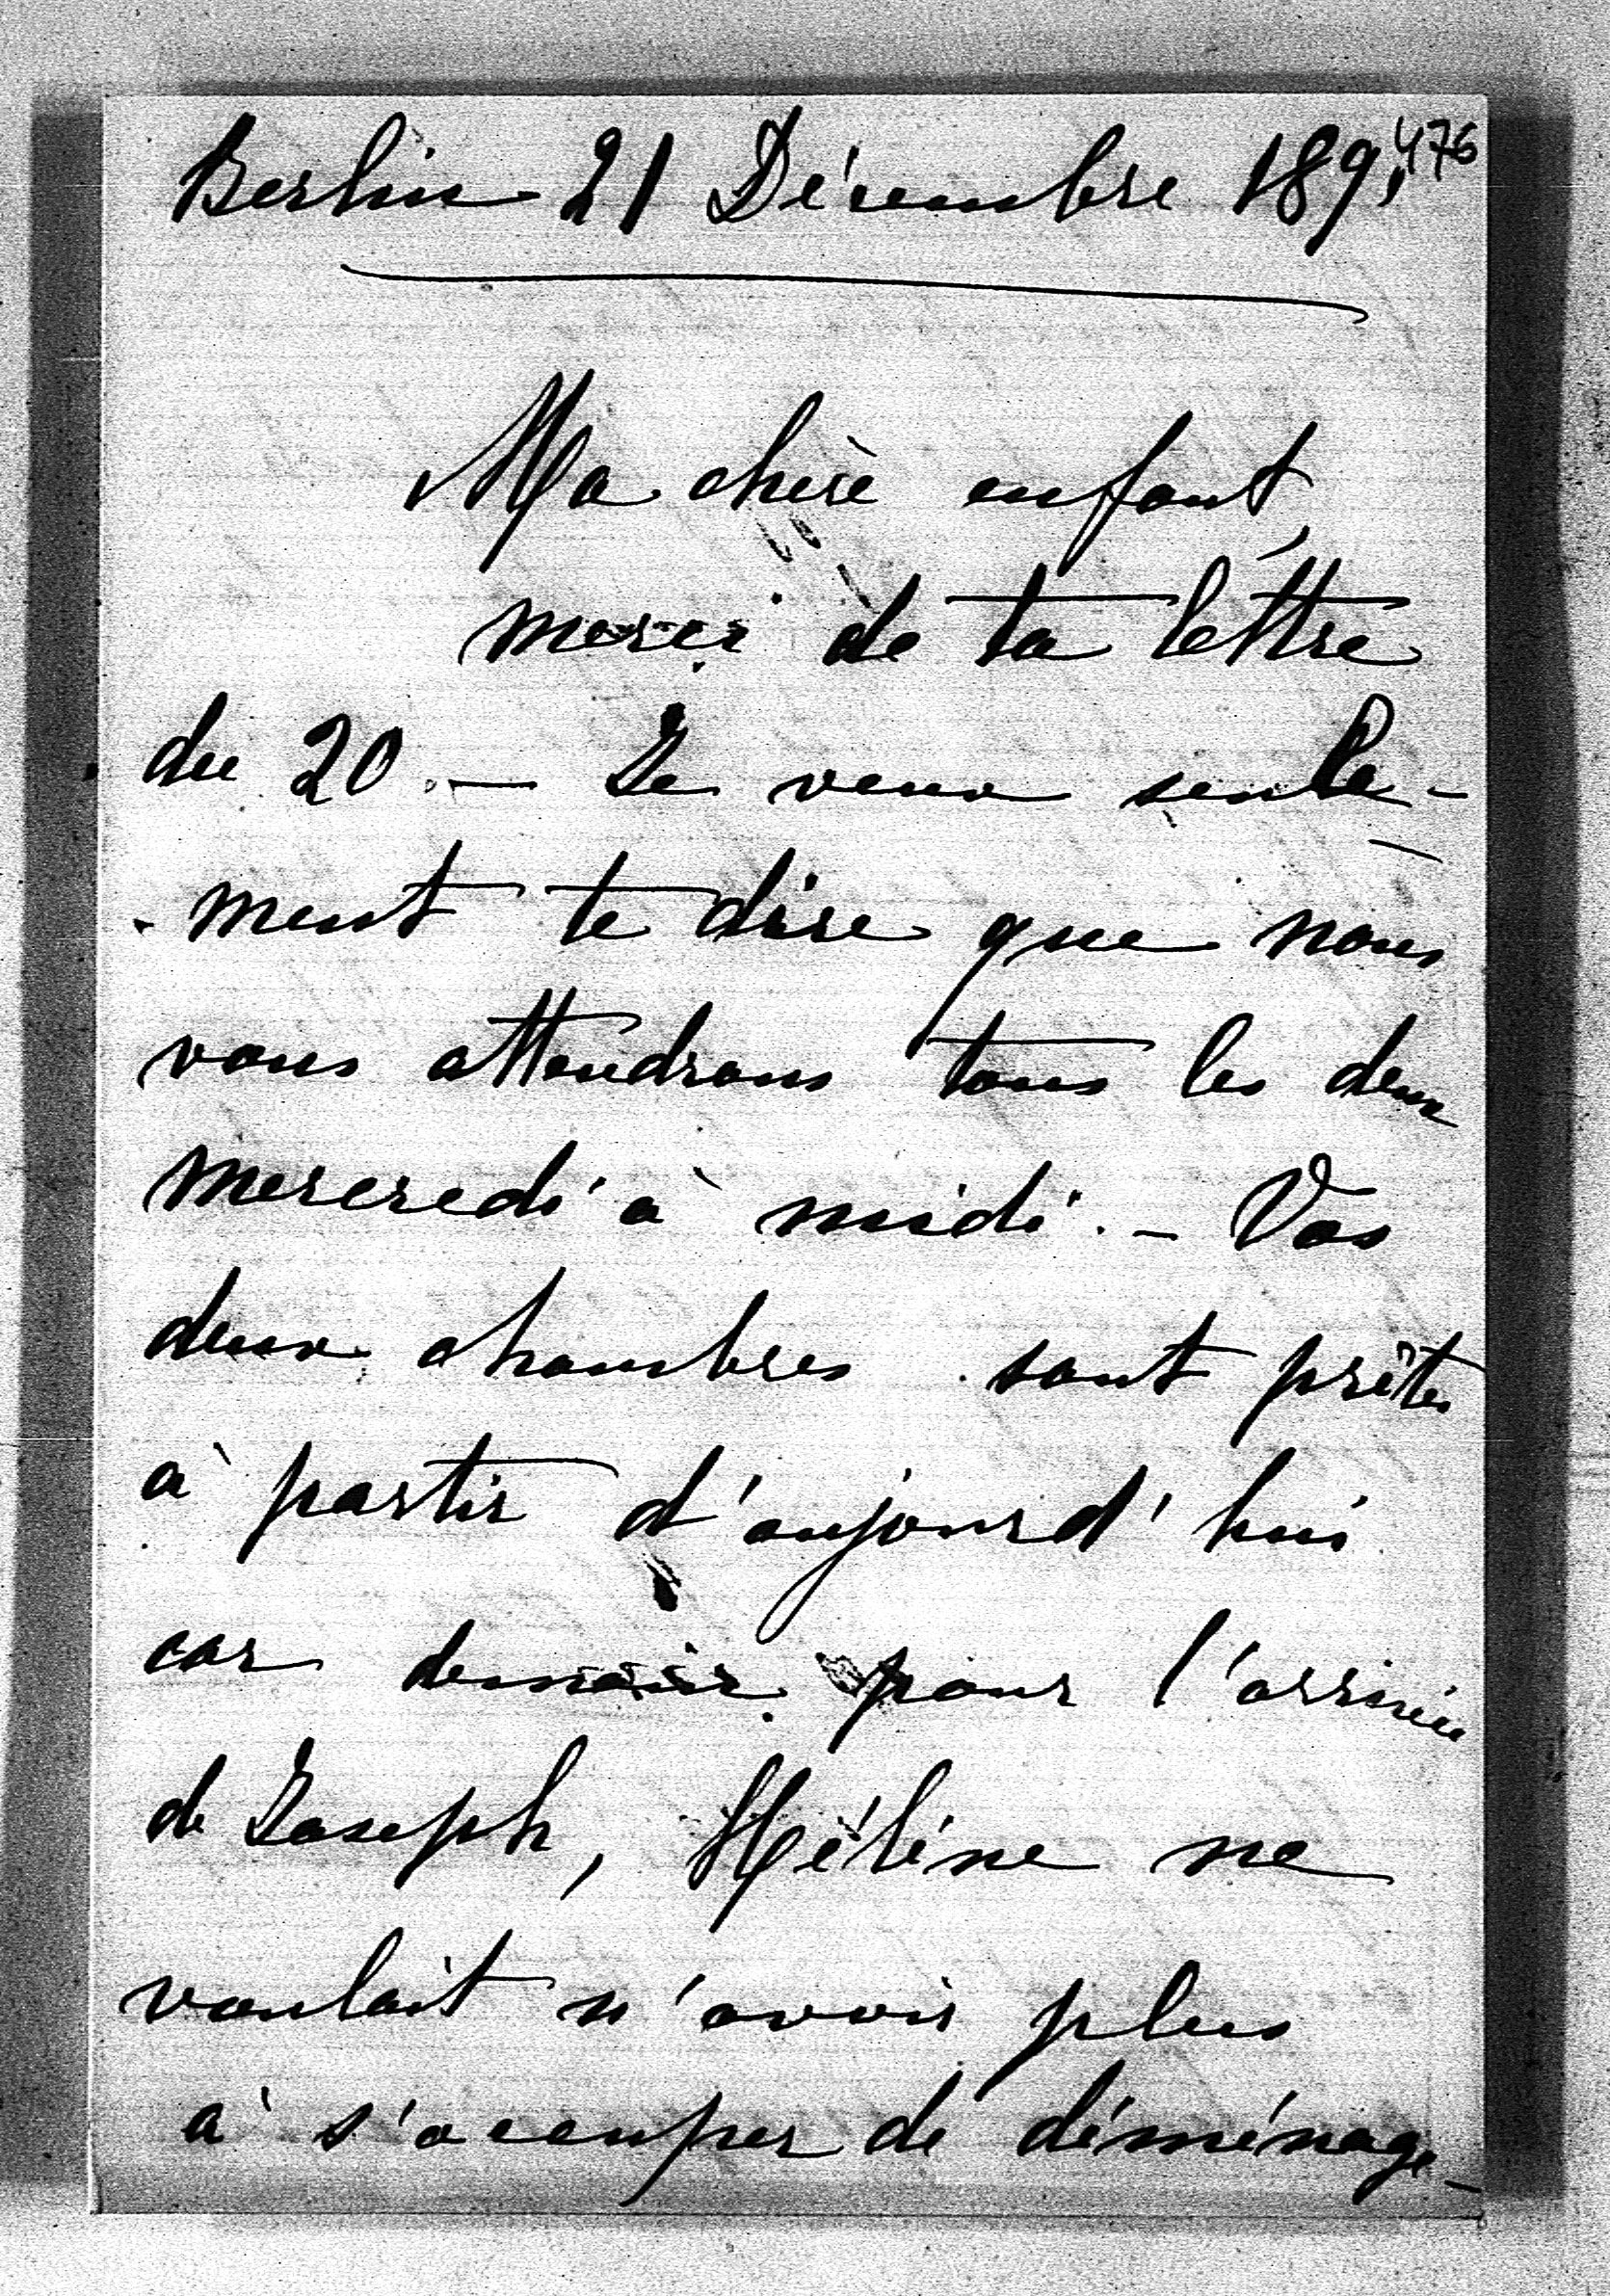 Berlin 21 Décembre 189, 476
Ma chère enfant,
merci de ta lettre
du 20. — Je veux seule-
-ment te dire que nous
vous attendrons tous les deux
mercredi à midi. — Vos
deux chambres sont prêtes
à partir d'aujourd'hui
car demain pour l'arrivée
de Joseph, Hélène ne
voulait n'avoir plus
à s'occuper de déménage-